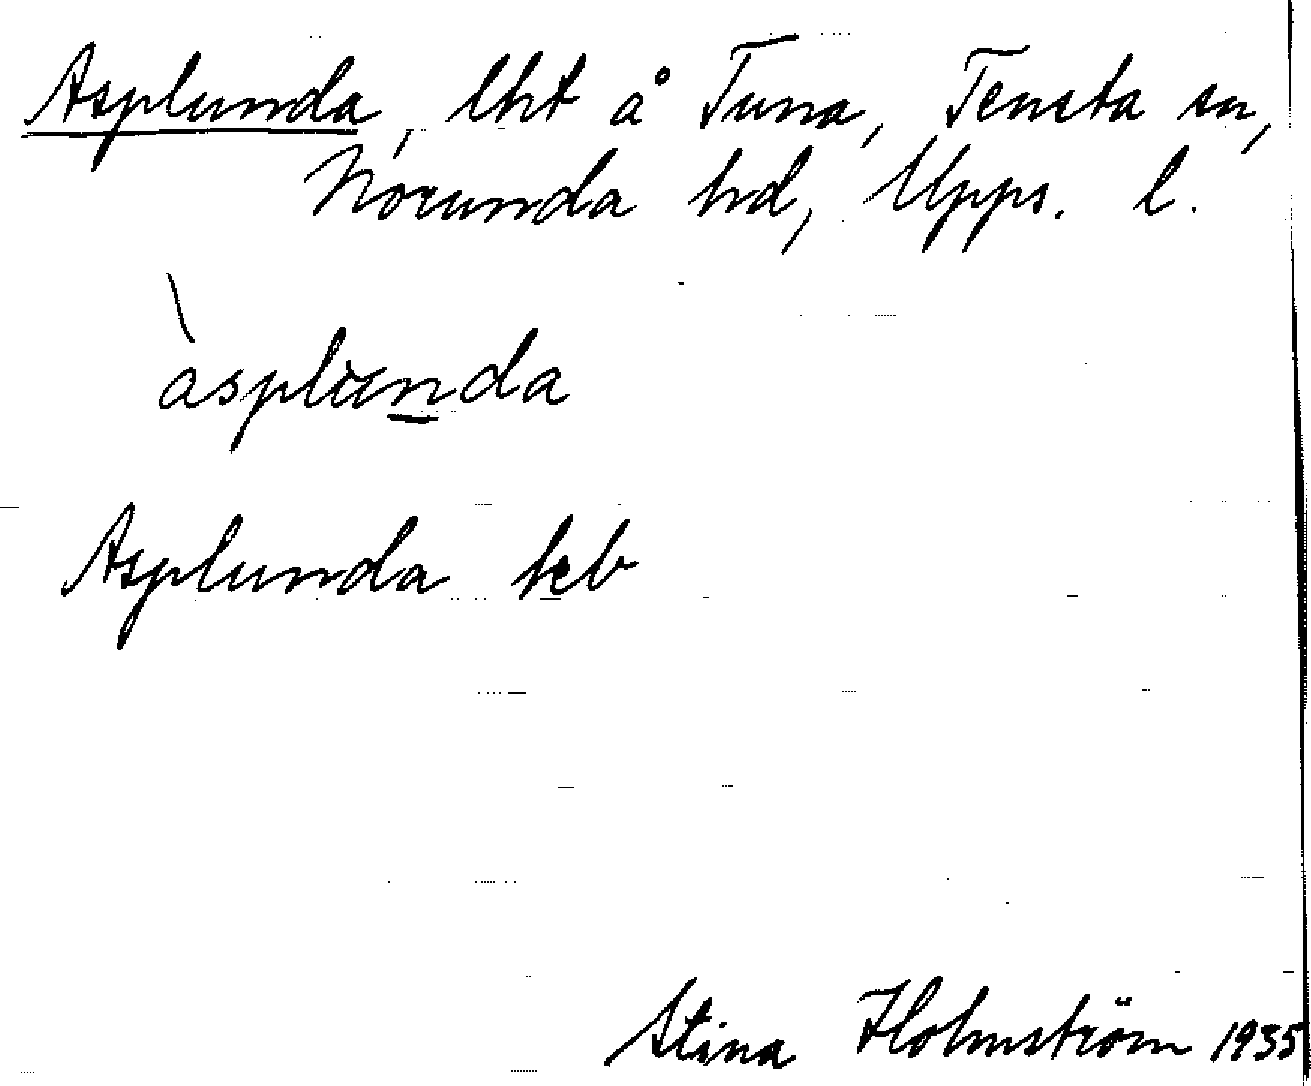 Asplunda, lht å Tuna, Tensta sn,
Norunda hd, Upps. l.
àsplùnda
Asplunda keb
Stina Holmström 1935